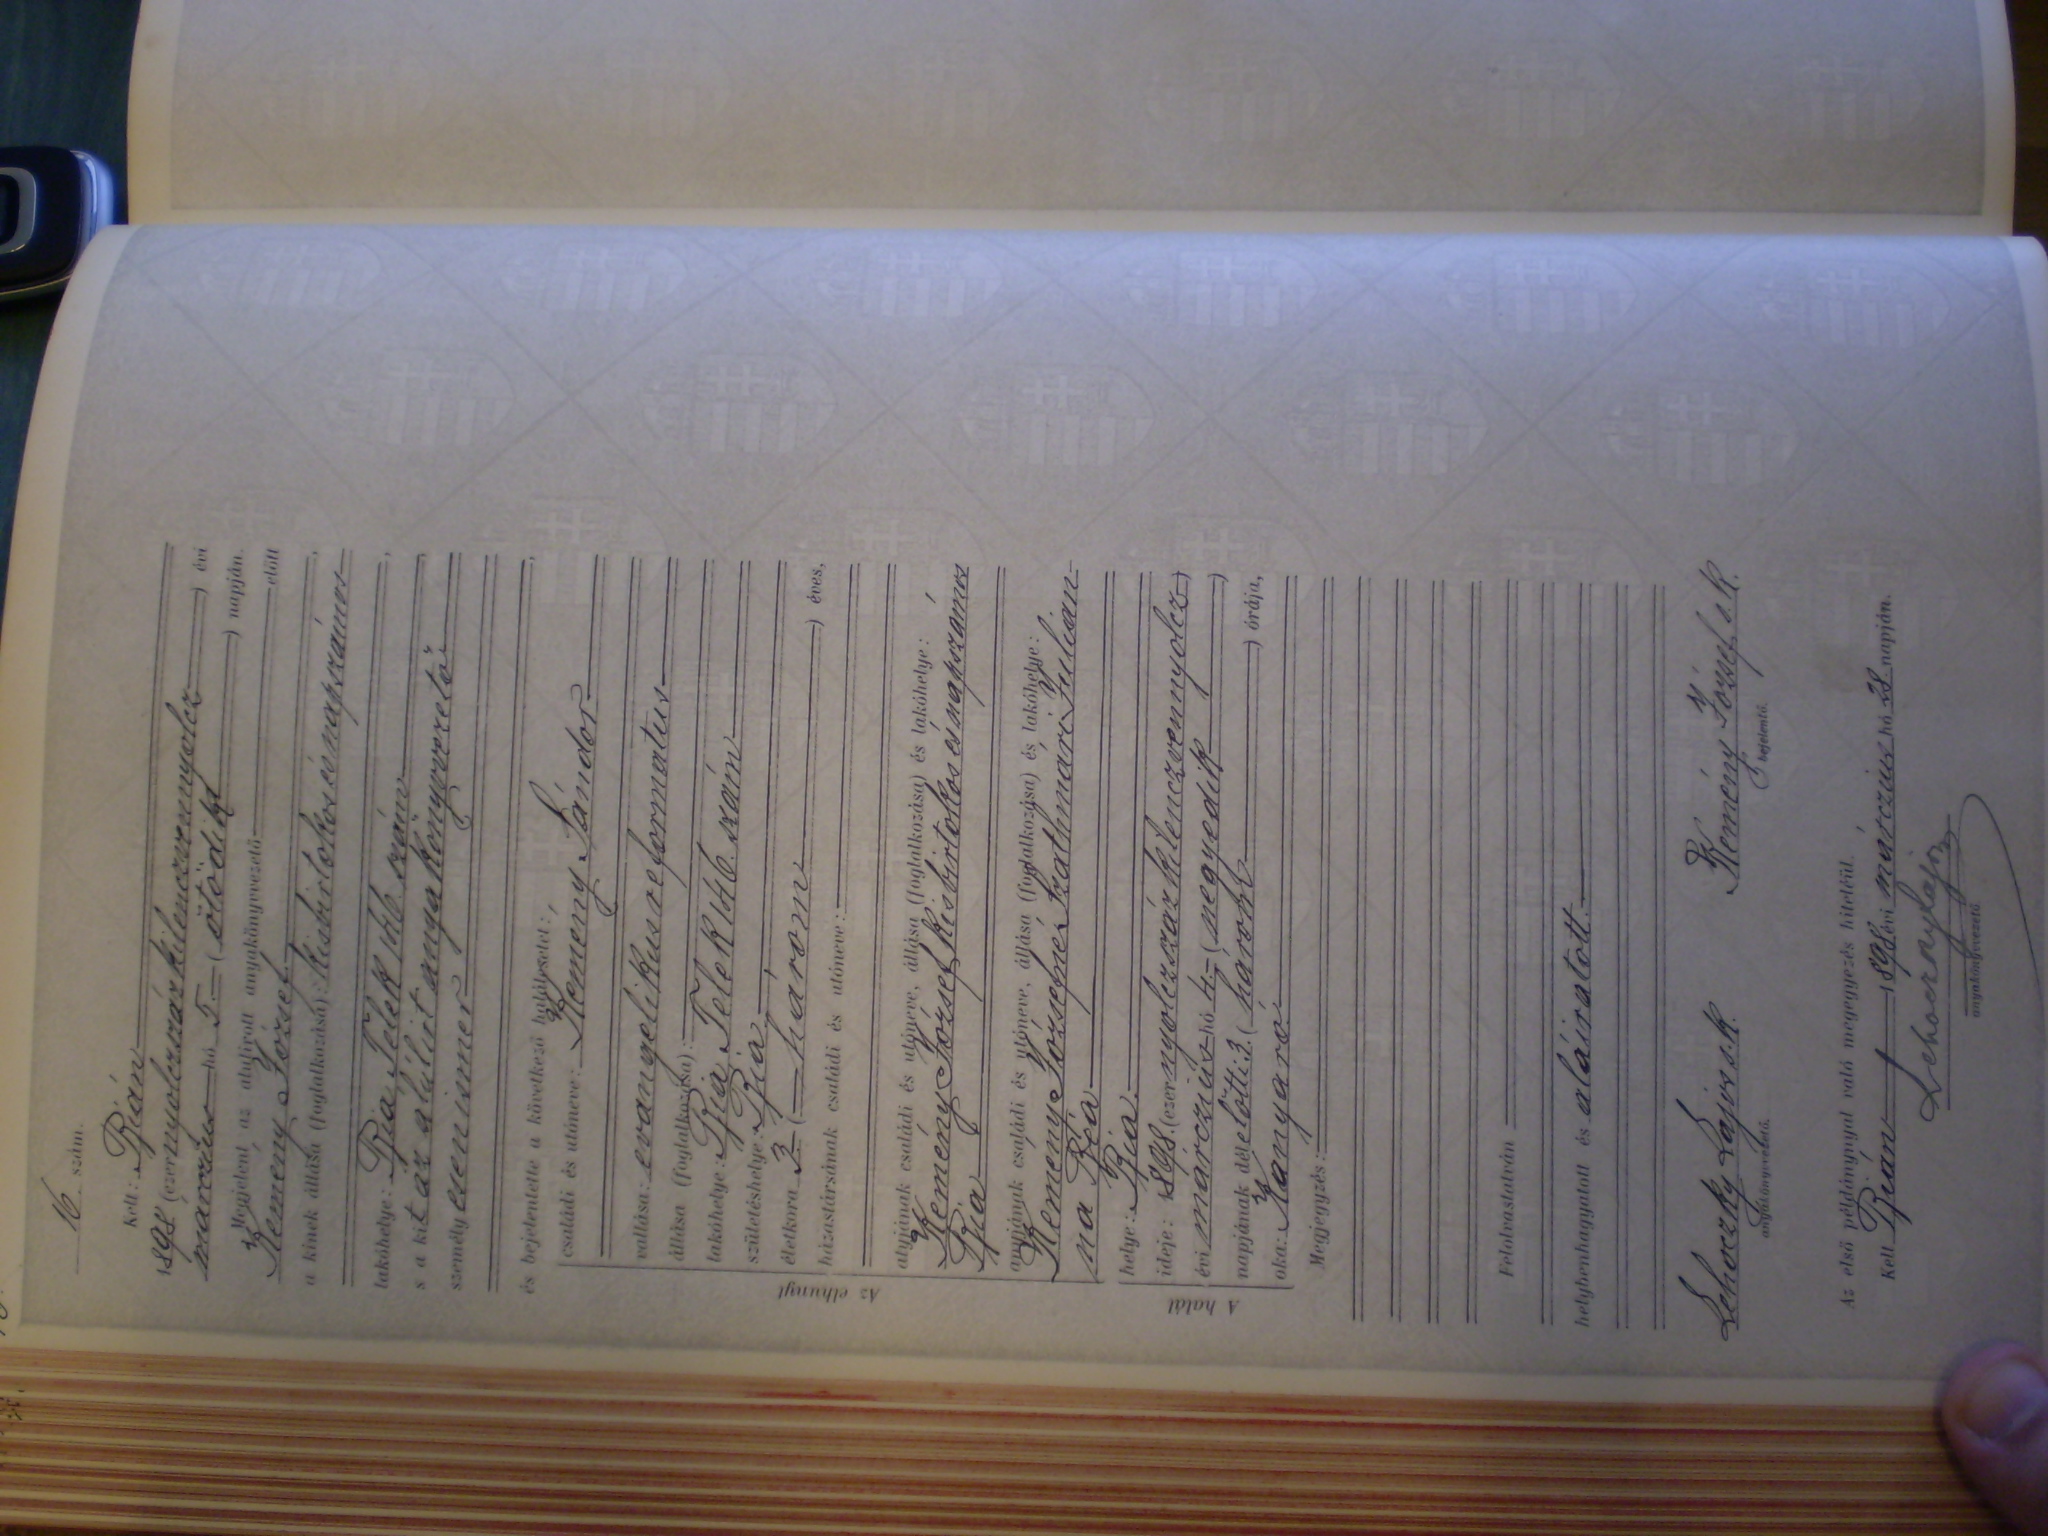 16. szám.
Kelt: Bián
1898 (ezernyolczszázkilenczvennyolcz) évi
márczius hó 5. (ötödik) napján.
Megjelent az alulirott anyakönyvvezető előtt
Kemény József,
a kinek állása (foglalkozása): kisbirtokos és napszámos
lakóhelye: Bia. Telek 146. szám,
s a kit az alálirt anyakönyvvezető
személyesen ismer
és bejelentette a következő halálesetet:
Az elhunyt
családi és utóneve: Kemény Sándor
vallása: evangelikus reformatus
állása (foglalkozása):
lakóhelye: Bia. Telek 146. szám
születéshelye: Bia
életkora 3. (három) éves,
házastársának családi és utóneve:
atyjának családi és utóneve, állása (foglalkozása) és lakóhelye:
Kemény József kisbirtokos és napszámos
Bia
anyjának családi és utóneve, állása (foglalkozása) és lakóhelye:
Kemény Józsefné Szathmári Julian-
na Bia
A halál
helye: Bia.
ideje: 1898. (ezernyolczszázkilenczvennyolcz)
évi márczius hó 4. (negyedik)
napjának délelőtti 3. (három) órája,
oka: Kanyaró
Megjegyzés:
Felolvastatván
helybenhagyatott és aláiratott.
Lehoczky Lajos s.k. Kemény József s.k.
anyakönyvvezető. bejelentő.
Az első példánynyal való megegyezés hiteléül.
Kelt Bián 1898 évi márczius hó 28 napján.
Lehoczky Lajos
anyakönyvvezető